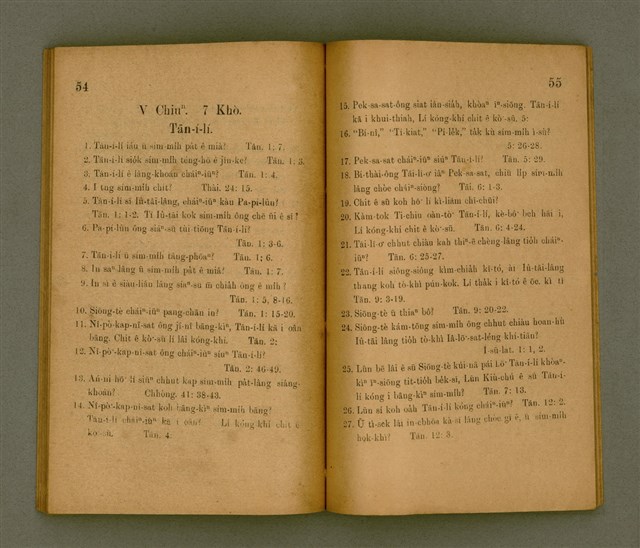 54
V Chiuⁿ. 7 Khò.
Tān-í-lí.
1. Tān-í-lí iáu ū sím-mi̍h pa̍t ê miâ? Tān. 1: 7.
2. Tān-í-lí sio̍k sím-mi̍h téng-hō ê jîn-ke? Tān. 1: 3.
3. Tān-í-lí ê lâng-khoán cháiⁿ-iūⁿ? Tān. 1: 4.
4. I tng sím-mi̍h chit? Thài. 24: 15.
5. Tān-í-lí sī Iû-tāi-lâng, cháiⁿ-iūⁿ kàu Pa-pí-lûn?
Tān. 1: 1-2. Tī Iû-tāi kok sím-mi̍h ông chē ūi ê sî?
6. Pa-pí-lûn ông siáⁿ-sū tùi tiōng Tān-í-lí?
Tān. 1: 3-6.
7. Tān-í-lí ū sím-mi̍h tâng-phōaⁿ? Tān. 1; 6.
8. In saⁿ-lâng ū sím-mi̍h pa̍t ê miâ? Tān. 1: 7.
9. In sī ê siàu-liân lâng siáⁿ-sū m̄ chia̍h ông ê mi̍h?
Tān. 1: 5, 8-16.
10. Siōng-tè cháiⁿ-iūⁿ pang-chān in? Tān. 1: 15-20.
11. Nî-pò͘-kap-nî-sat ông jī-nî bāng-kìⁿ, Tān-í-lí kā i oân
bāng. Chit ê kò͘-sū lí lâi kóng-khí. Tān. 2:
12. Nî-pò͘-kap-nî-sat ông cháiⁿ-iūⁿ sióⁿ Tān-í-lí?
Tān. 2: 46-49.
13. Án-ni hō͘ lí siūⁿ chhut kap sím-mi̍h pa̍t-lâng siāng-
khoán? Chhòng. 41: 38-43.
14. Nî-pò͘-kap-nî-sat koh bāng-kìⁿ sím-mi̍h bāng?
Tān-í-lí cháiⁿ-iūⁿ kā i oân? Lí kóng-khí chit ê
kò͘-sū. Tān. 4.
55
15. Pek-sa-sat-ông siat iân-sia̍h, khòaⁿ īⁿ-siōng. Tān-í-lí
kā i khui-thiah, Lí kóng-khí chit ê kò͘-sū. 5:
16. "Bí-nî," "Tî-kiat," "Pí-le̍k," ta̍k kù sím-mi̍h ì-sù?
5: 26-28.
17. Pek-sa-sat cháiⁿ-iūⁿ siúⁿ Tān-í-lí? Tān. 5: 29.
18. Bí-thài-ông Tāi-lī-o͘ iâⁿ Pek-sa-sat, chiū li̍p sím-mi̍h
lâng chòe chéⁿ-siòng? Tāi. 6: 1-3.
19. Chit ê sū koh hō͘ lí kì-liām chī-chūi?
20. Kàm-tok Tì-chiu oàn-tò͘ Tān-í-lí, kè-bô͘ beh hāi i,
Lí kóng-khí chit ê kò͘-sū. Tān. 6: 4-24.
21. Tāi-lī-o͘ chhut chiàu kah thiⁿ-ē chèng-lâng tio̍h cháiⁿ-
iūⁿ? Tān. 6: 25-27.
22. Tān-í-lí siông-siông kìm-chia̍h kî-tó, ài Iû-tāi-lâng
thang koh tò-khì pún-kok. Lí tha̍k i kî-tó ê ōe. kì tī
Tān. 9: 3-19.
23. Siōng-tè ū thiaⁿ bô? Tān. 9: 20-22.
24. Siōng-tè kám-tōng sím-mi̍h ông chhut chiàu hoan-hù
Iû-tāi-lâng tio̍h tò-khì Iâ-lō͘-sat-léng khí-tiān?
Í-sū-lat. 1: 1, 2.
25. Lūn bē lâi ê sū Siōng-tè kúi-nā pái hō͘ Tān-í-lí khòaⁿ-
kìⁿ īⁿ-siōng tit-tio̍h bêk-sī, Lūn Kiù-chú ê sū Tān-í-
lí kóng i bāng-kìⁿ sím-mi̍h? Tān. 7: 13.
26. Lūn sí koh oa̍h Tān-í-lí kóng cháiⁿ-iūⁿ? Tān. 12: 2.
27. Ū tì-sek lâi ín-chhōa kà-sī lâng chòe gī ê, ū sím-mi̍h
hok-khì? Tān. 12: 3.